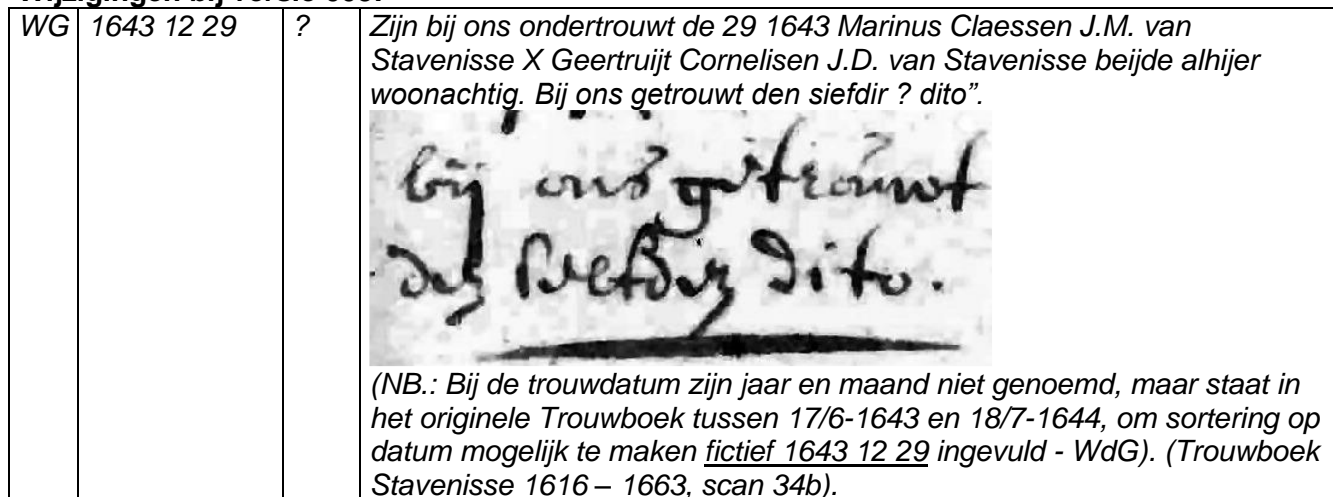 Wijzigingen bij versie
WG 1643 12 29 ? Zijn bij ons ondertrouwt de 29 1643 Marinus Claessen J.M. van
Stavenisse X Geertruijt Cornelisen J.D. van Stavenisse beijde alhijer
woonachtig. Bij ons getrouwt den siefdir ? dito”.
bij ons getrouwt
den dito.
(NB.: Bij de trouwdatum zijn jaar en maand niet genoemd, maar staat in
het originele Trouwboek tussen 17/6-1643 en 18/7-1644, om sortering op
datum mogelijk te maken fictief 1643 12 29 ingevuld - WdG). (Trouwboek
Stavenisse 1616 – 1663, scan 34b).